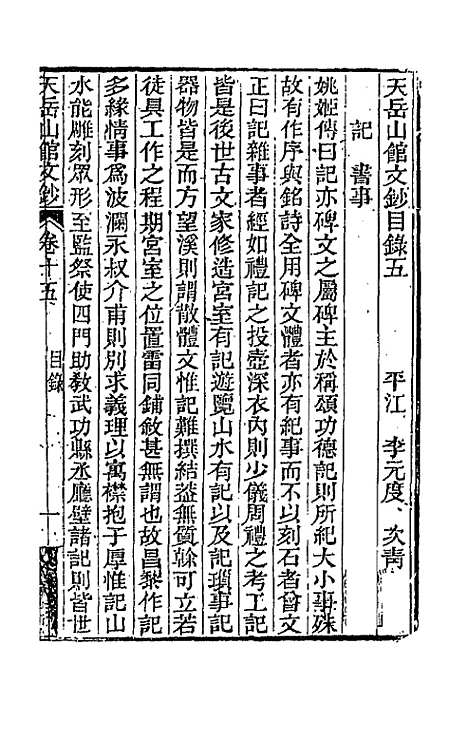 天岳山館文鈔目錄五　平江　李元度　次青
記　書事
姚姬傳曰記亦碑文之屬碑主於稱頌功德記則所紀大小事殊
故有作序與銘詩全用碑文體者亦有紀事而不以刻石者曾文
正曰記雜事者經如禮記之投壺深衣內則少儀周禮之考工記
皆是後世古文家修造宮室有記遊覽山水有記以及記瑣事記
器物皆是而方望溪則謂散體文惟記難撰結蓋無質榦可立若
徒具工作之程期宮室之位置雷同鋪敘甚無謂也故昌黎作記
多緣情事爲波瀾永叔介甫則別求義理以寓襟抱子厚惟記山
水能雕刻眾形至監祭使四門助教武功縣丞廳壁諸記則皆世
天岳山館文鈔　卷十五　目錄　一